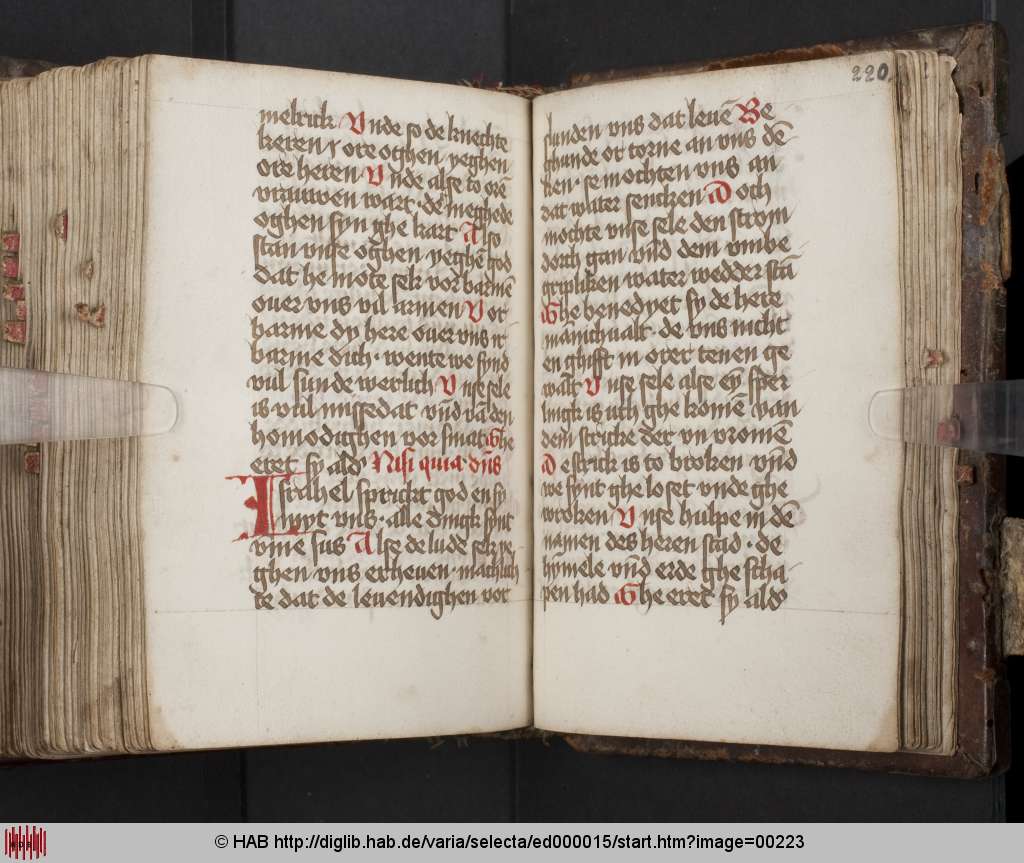 melrick Vnde so de knechte
keren ore oghen yeghen
ore heren Vnde alse to orē
vrauwen wart de meghede
oghen syn ghe kart Also
stan vnse oghen yeghē god
dat he mote sek vor barmē
ouer vns vil armen Vor
barme dy here ouer vns
barme dich wente we synd
vul sunde werlich Vnse sele
is vul missedat vn̄d vā den
homodighen vor smat Ghe
eret sy ald Nisi quia dn̄s
Israhel sprickt god en sy
myt vns alle dingk synt
vme sus Alse de lude sek ye
ghen vns erheuen machlich
te dat de leuendighen vor
220
slunden vns dat leuē Be
ghunde or torne an vns dē
ken se mochten vns an
dat water sencken Doch
mochte vnse sele den strom
dorch gan vnd dem vmbe
gripliken water wedder stā
Ghe benedyet sy de here
mānichualt de vns nicht
en ghift in orer tenen ge
walt Vnse sele alse eyn sper
lingk is vth ghe komē van
dem stricke der vn vromē
De strick is to broken vn̄d
we synt ghe loset vnde ghe
wroken Vnse hulpe in dē
namen des heren stād de
hymele vn̄d erde ghe scha
pen had Ghe eret sy ald
© HAB http://diglib.hab.de/varia/selecta/ed000015/start.htm?image=00223